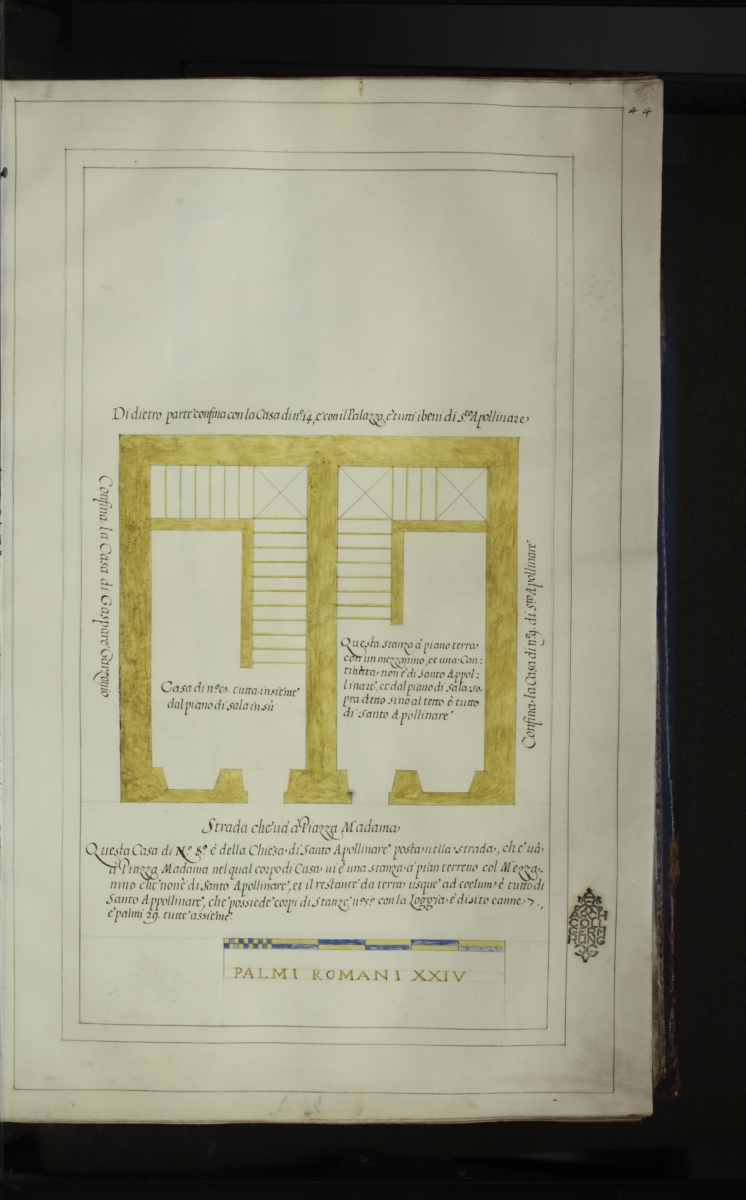 44
Di dietro parte confina con la Casa di n.º 14, e con il Palazzo, e tutti i beni di S.to Apollinare
Confina la Casa di Gaspare
Casa di n.º tutta insieme
dal piano di sala in sù
Questa stanza à piano terra
con un mezzanino, et una Can-
tinetta non è di Santo Appol-
linare, et dal piano di sala so-
pra detto sino al tetto è tutto
di Santo Apollinare
Confina la Casa di n.º 9. di S.to Apollinare
Strada che và à Piazza Madama
Questa Casa di N.º 8.º è della Chiesa di Santo Apollinare posta nella strada, che và
à Piazza Madama nel qual corpo di Casa vi è una stanza à pian terreno col Mezza-
nino che non è di Santo Apollinare, et il restante da terra usque ad coelum è tutto di
Santo Appollinare, che possiede corpi di Stanze n.º con la Loggia è di sito canne 7.,
e palmi 29. tutte assieme.
PALMI ROMANI XXIV